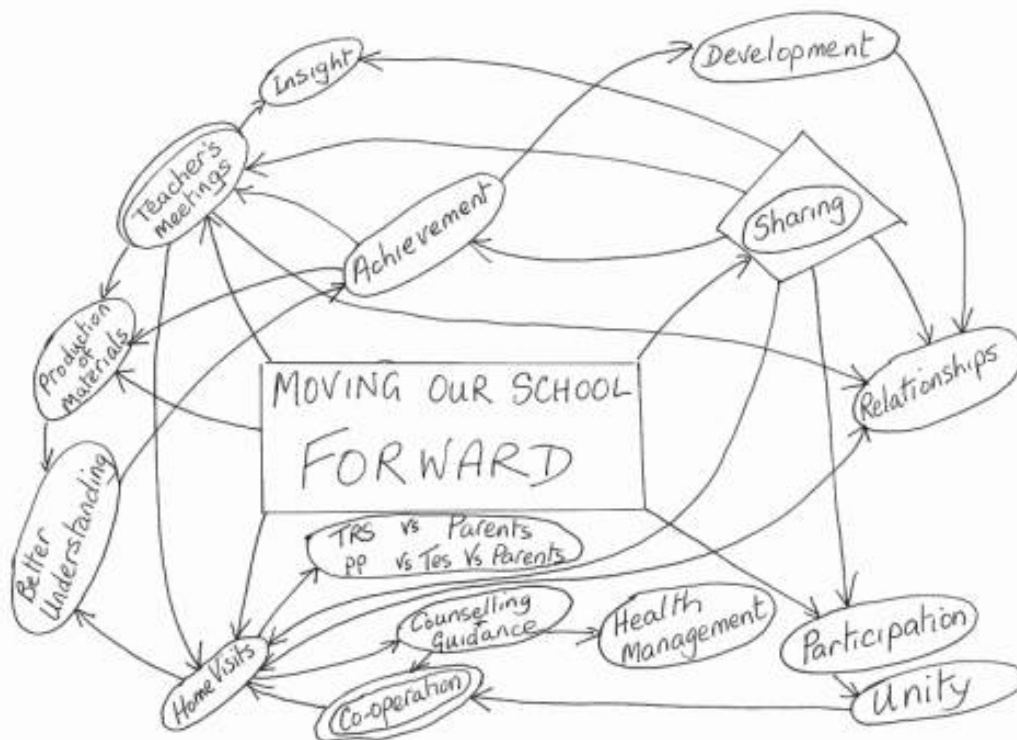 Insight
Development
Teacher's
Meetings
Achievement
Sharing
Production
of
Materials
MOVING OUR SCHOOL
FORWARD
Relationships
Better
Understanding
TRS vs Parents
PP vs Tes Vs Parents
Counselling
Guidance
Health
Management
Participation
Home Visits
Co-operation
Unity